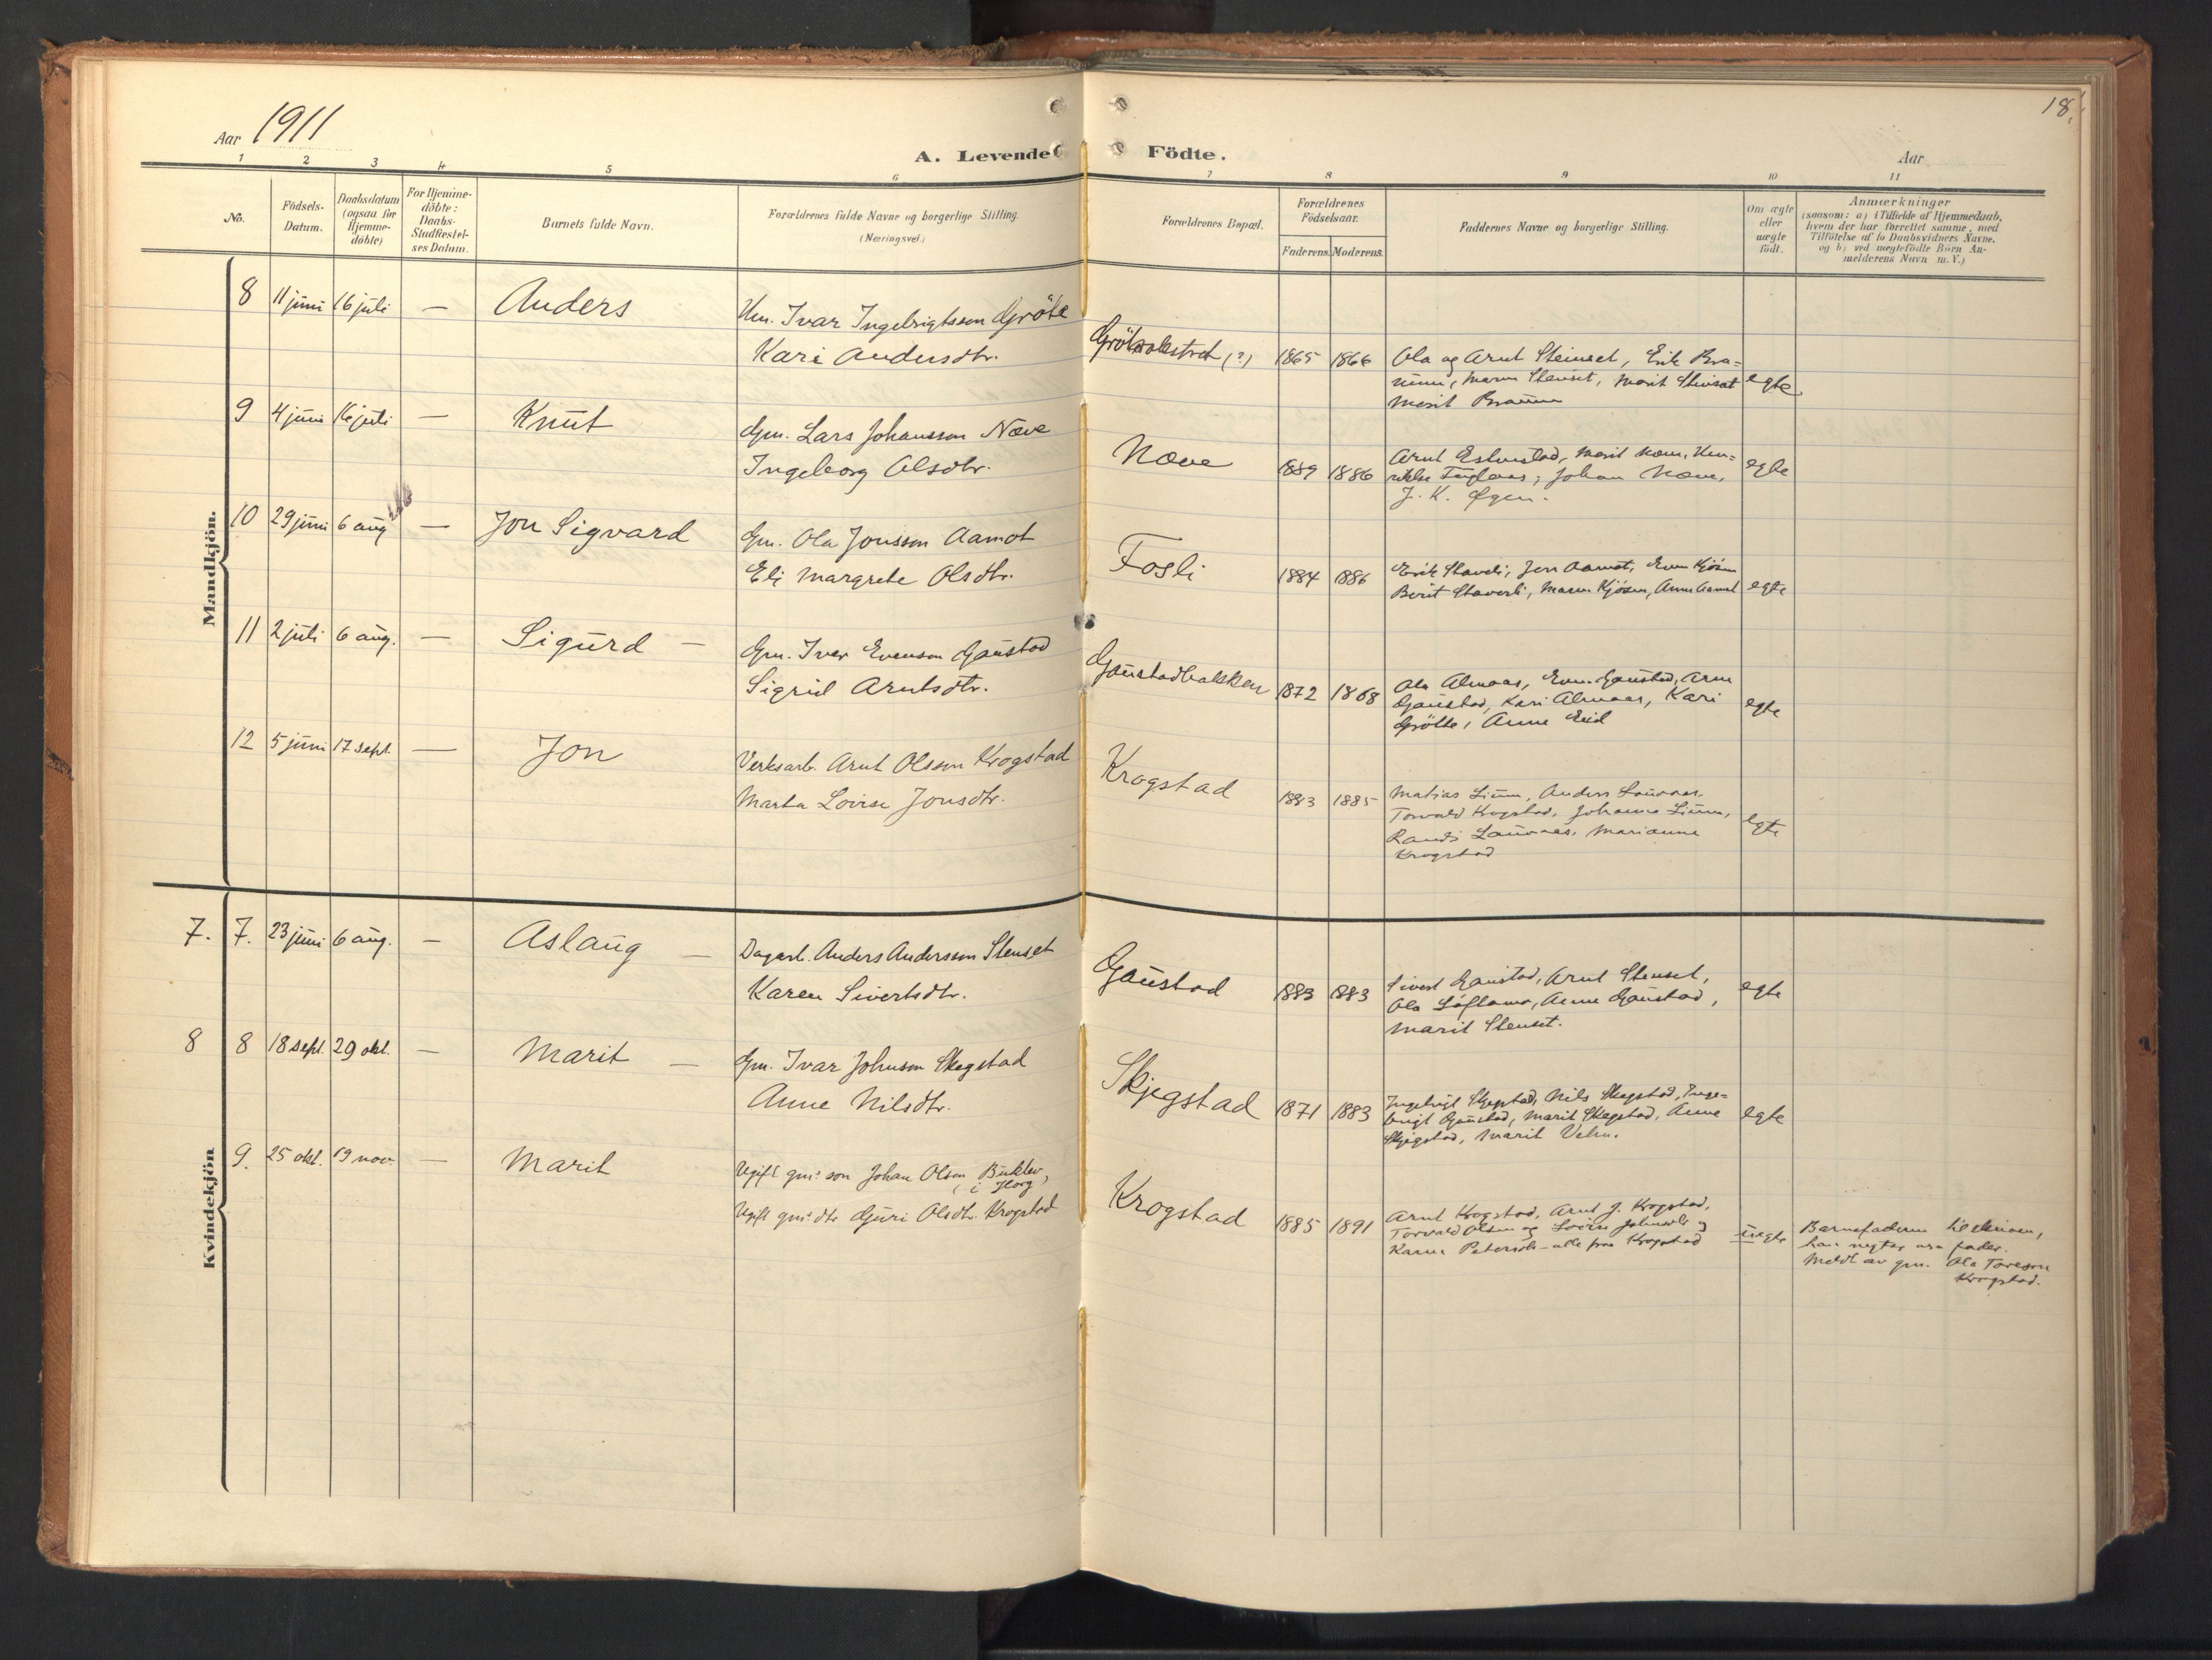 18.
Aar 1911
A. Levende Födte.
Aar
1 2 3 4 5 6 7 8 9 10 11
No.
Födsels-
Datum.
Daabsdatum
(ogsaa for
Hjemme-
döbte)
For Hjemme-
döbte:
Daabs-
Stadfæstel-
ses Datum.
Barnets fulde Navn.
Forældrenes fulde Navne og borgerlige Stilling.
(Næringsvei.)
Forældrenes Bopæl.
Forældrenes
Födselsaar.
Faderens. Moderens.
Faddernes Navne og borgerlige Stilling.
Om ægte
eller
uægte
födt.
Anmærkninger
(saasom: a) i Tilfælde af Hjemmedaab,
hvem der har forrettet samme, med
Tilföielse af to Daabsvidners Navne.
og b) ved uægtefödte Börn An-
melderens Navn m.V.)
Mandkjön.
8 11 juni 16 juli — Anders
Ivar Ingebrigtsson Gröte
Kari Andersdtr.
(?) 1865 1866
Ola og Arnt Steinset, Erik
Stenset, Marit
Marit
egte
9 4 juni 16 juli — Knut
Gm. Lars Johansson Næve
Ingeborg Olsdtr.
Næve 1889 1886
Arnt
Johan Næve,
J. K. Øyen.
egte
10 29 juni 6 aug — Jon Sigvard
Gm. Ola Jonsson Aamot
Eli Margrete Olsdtr.
Fosli 1884 1886
Erik Staverli, Jon Aamot, Even Kjösen
Berit Staverli, Maren Kjösen, Anne Aamot
egte
11 2 juli 6 aug. — Sigurd —
Gm. Iver Evenson Gaustad
Sigrid Arntsdtr.
Gaustadbakken 1872 1868
Ola Almaas, Even Gaustad, Arne
Gaustad, Kari Almaas, Kari
Grötte, Anne Eid
egte
12 5 juni 17 sept. — Jon
Verksarb. Arnt Olsson Krogstad
Marta Lovise Jonsdtr.
Krogstad 1883 1885
Matias Lium, Anders
Torvald Krogstad, Johanna Lium,
Randi Marianne
Krogstad
egte
Kvindekjön
7. 7. 23 juni 6 aug. — Aslaug —
Dagarb. Anders Andersson Stenset
Karen Sivertsdtr.
Gaustad 1883 1883
Sivert Gaustad, Arnt Stenset,
Ola Anne Gaustad,
Marit Stenset.
egte
8 8 18 sept. 29 okt. — Marit —
Gm. Ivar Johnson Skegstad
Anne Nilsdtr.
Skjegstad 1871 1883
Ingebrigt Skjegstad, Nils Skegstad, Inge-
brigt Gaustad, Marit Skegstad, Anne
Skjegstad, Marit
egte
9. 25 okt. 19 nov. — Marit
Ugift gm's son Johan Olson
(i Horg)
Ugift gm's dtr Guri Olsdtr. Krogstad
Krogstad 1885 1891
Arnt Krogstad, Arnt J. Krogstad,
Torvald Olsen og Lovise og
Karen Petersdtr – alle fra Krogstad
uegte
Barnefaderen tilskreven,
han negter fader.
Meldt av gm. Ola Toreson
Krogstad.